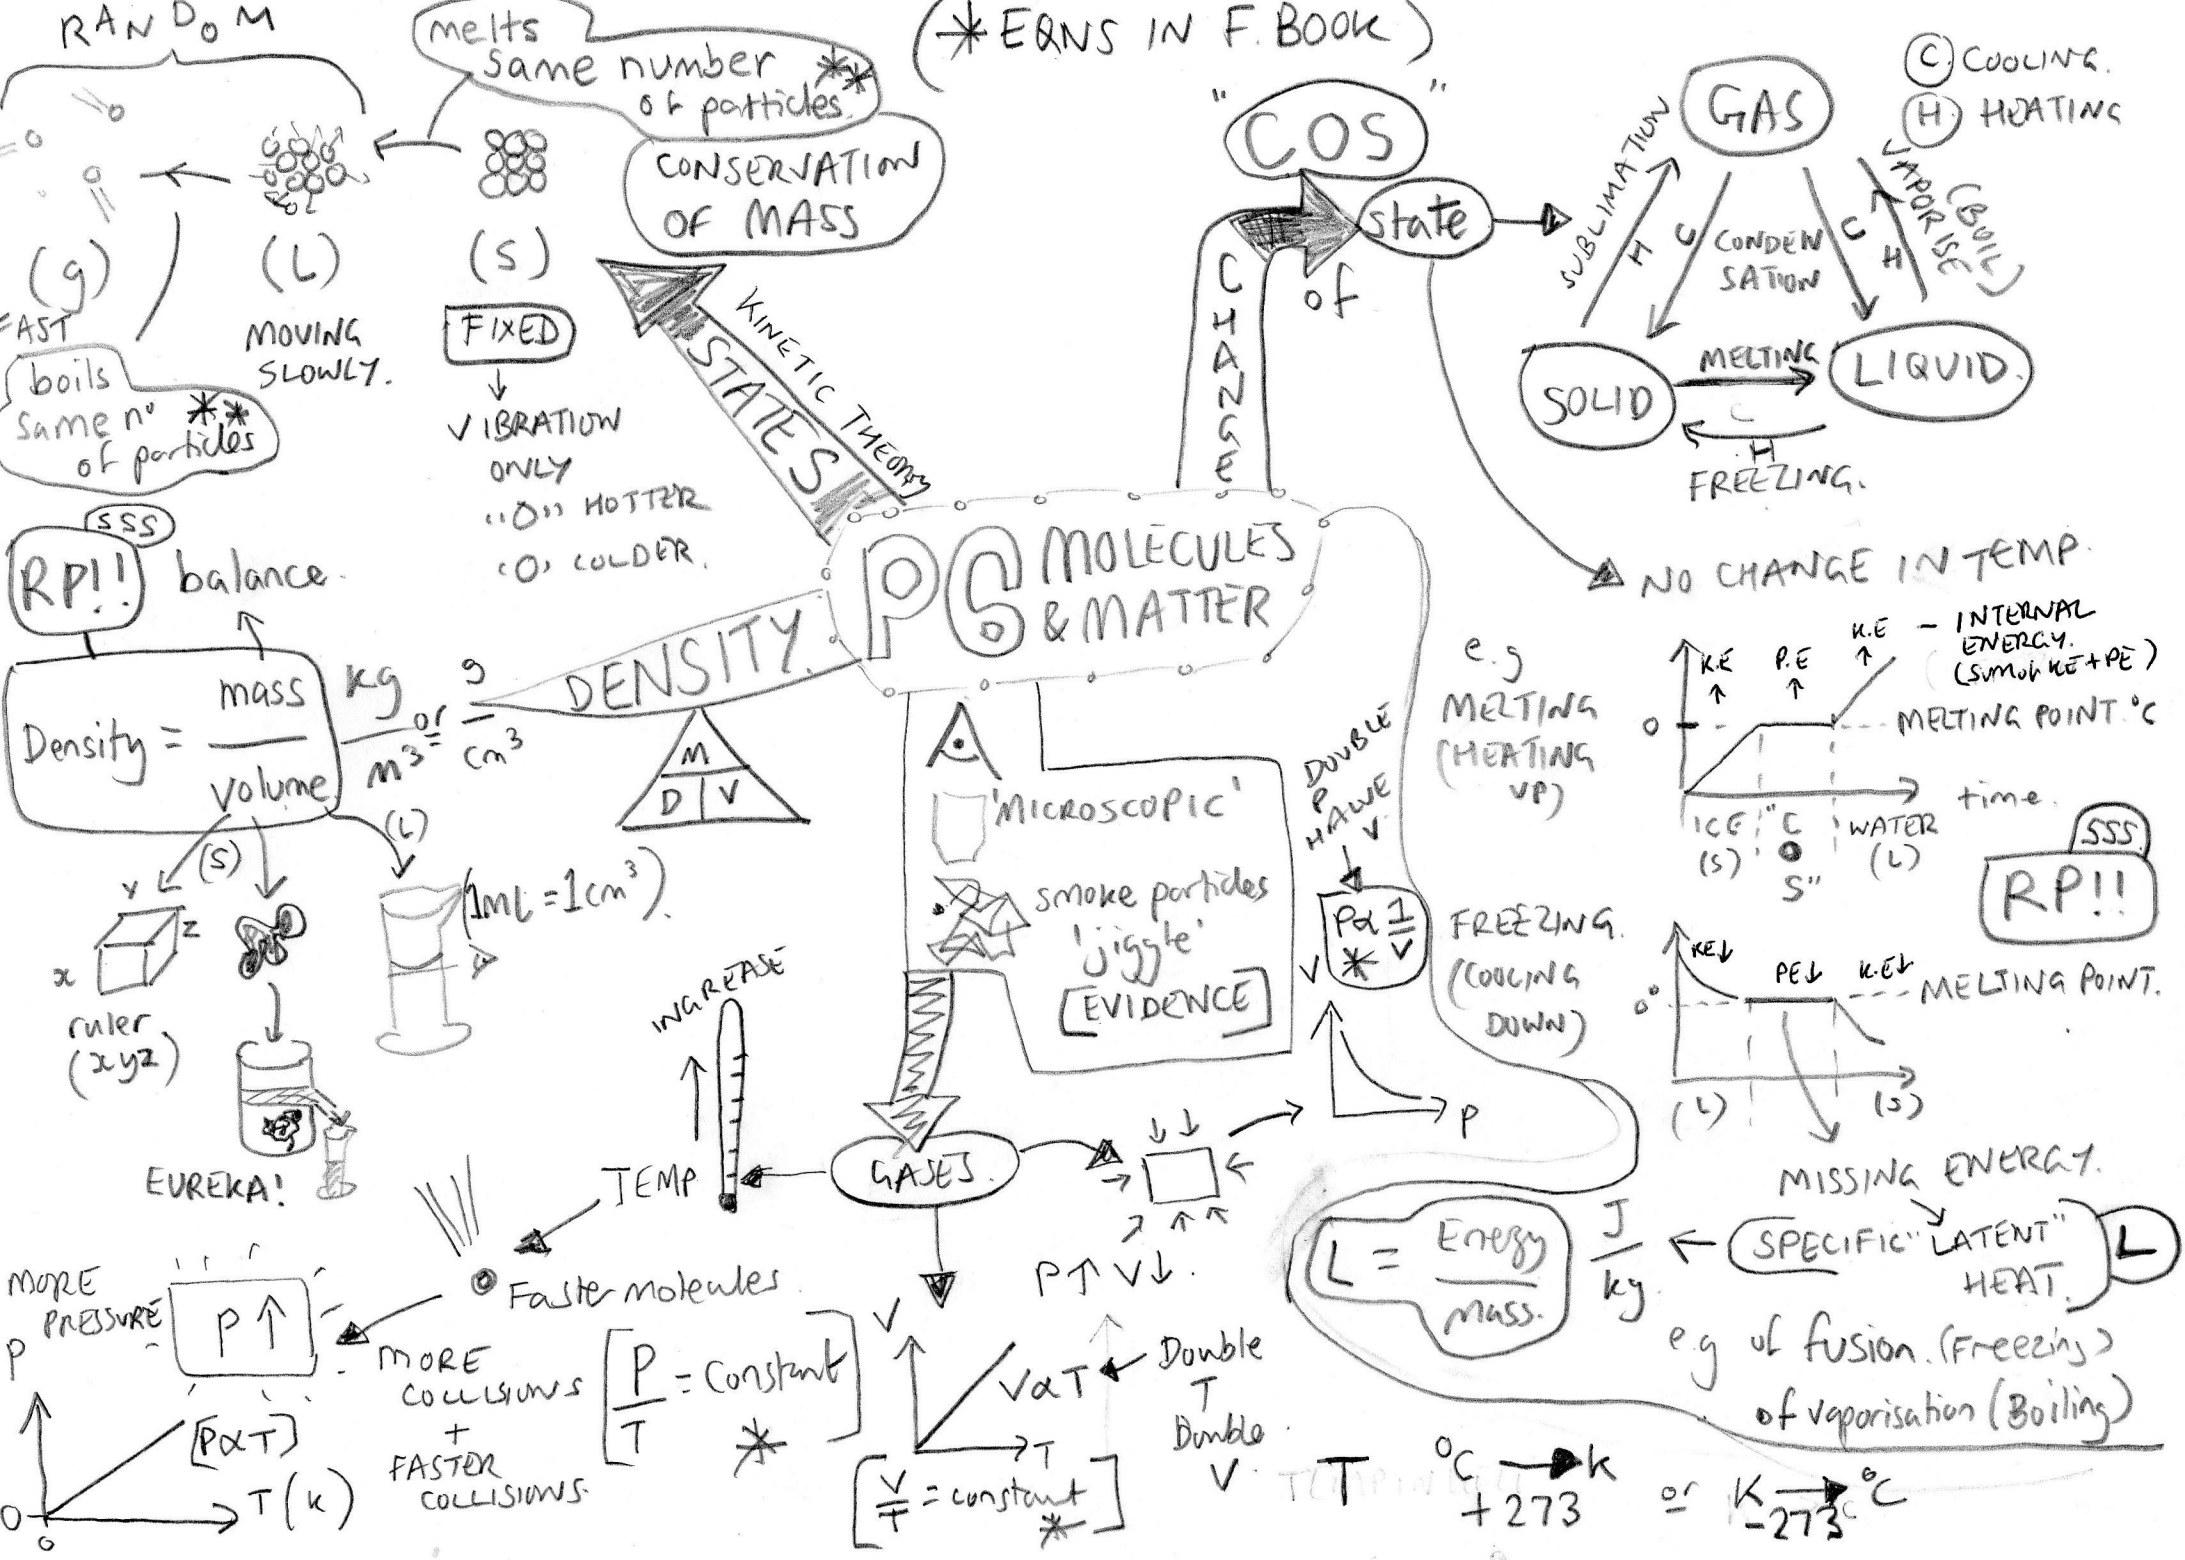 RANDOM
melts
same number **
of particles.
(* EQNS IN F. BOOK)
CONSERVATION
OF MASS
(g)
(L)
(S)
FAST
MOVING
SLOWLY.
FIXED
VIBRATION
ONLY
"O" HOTTER
'O' COLDER.
boils
same nº **
of particles
KINETIC THEORY
STATES
"COS"
CHANGE
of
state
C COOLING.
H HEATING
GAS
SUBLIMATION
H
C
CONDEN
SATION
C
H
VAPORISE
(BOIL)
SOLID
MELTING
LIQUID.
C
H
FREEZING.
P6 MOLECULES
& MATTER
SSS
RP!!
balance.
Density = mass
volume
kg
m³
or
g
cm³
DENSITY.
M
D V
(S)
(L)
y
z
x
ruler
(xyz)
(1mL = 1cm³).
EUREKA!
'MICROSCOPIC'
smoke particles
'jiggle'
[EVIDENCE]
NO CHANGE IN TEMP.
e.g
MELTING
(HEATING
UP)
K.E
P.E
K.E
- INTERNAL
ENERGY.
(sum of KE+PE)
0
MELTING POINT. °C
time.
ICE
(S)
"C
O
S"
WATER
(L)
SSS
RP!!
FREEZING.
(COOLING
DOWN)
KE↓
PE↓
K.E↓
0°
MELTING POINT.
(L)
(S)
MISSING ENERGY.
SPECIFIC "LATENT"
HEAT.
L
J
kg
L = Energy
Mass.
e.g of fusion. (Freezing)
of vaporisation (Boiling)
DOUBLE
P
HALVE
V.
P∝ 1
V
*
V
P
GASES.
P↑ V↓.
INCREASE
TEMP
Faster molecules.
MORE
PRESSURE
P↑
MORE
COLLISIONS
+
FASTER
COLLISIONS.
P
[P∝T]
T(K)
0
0
[P
T = constant
*]
V
V∝T
T
Double
T
Double
V.
[V
T = constant
*]
T °C → K
+273
or K → °C
-273